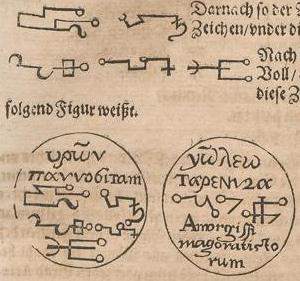 Darnach so der
Zeichen/vnder di
Nach
Voll/
diese Z
folgend Figur weißt.
υρῶν
παννοβιταm
γῶλεω
Ταρενυζα
Amorgissi
rum